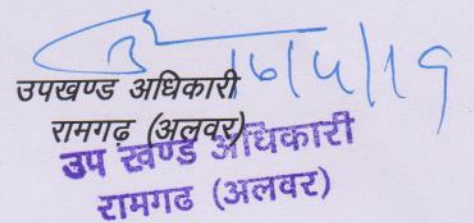 16/4/19
उपखण्ड अधिकारी
रामगढ़ (अलवर)
उप खण्ड अधिकारी
रामगढ (अलवर)